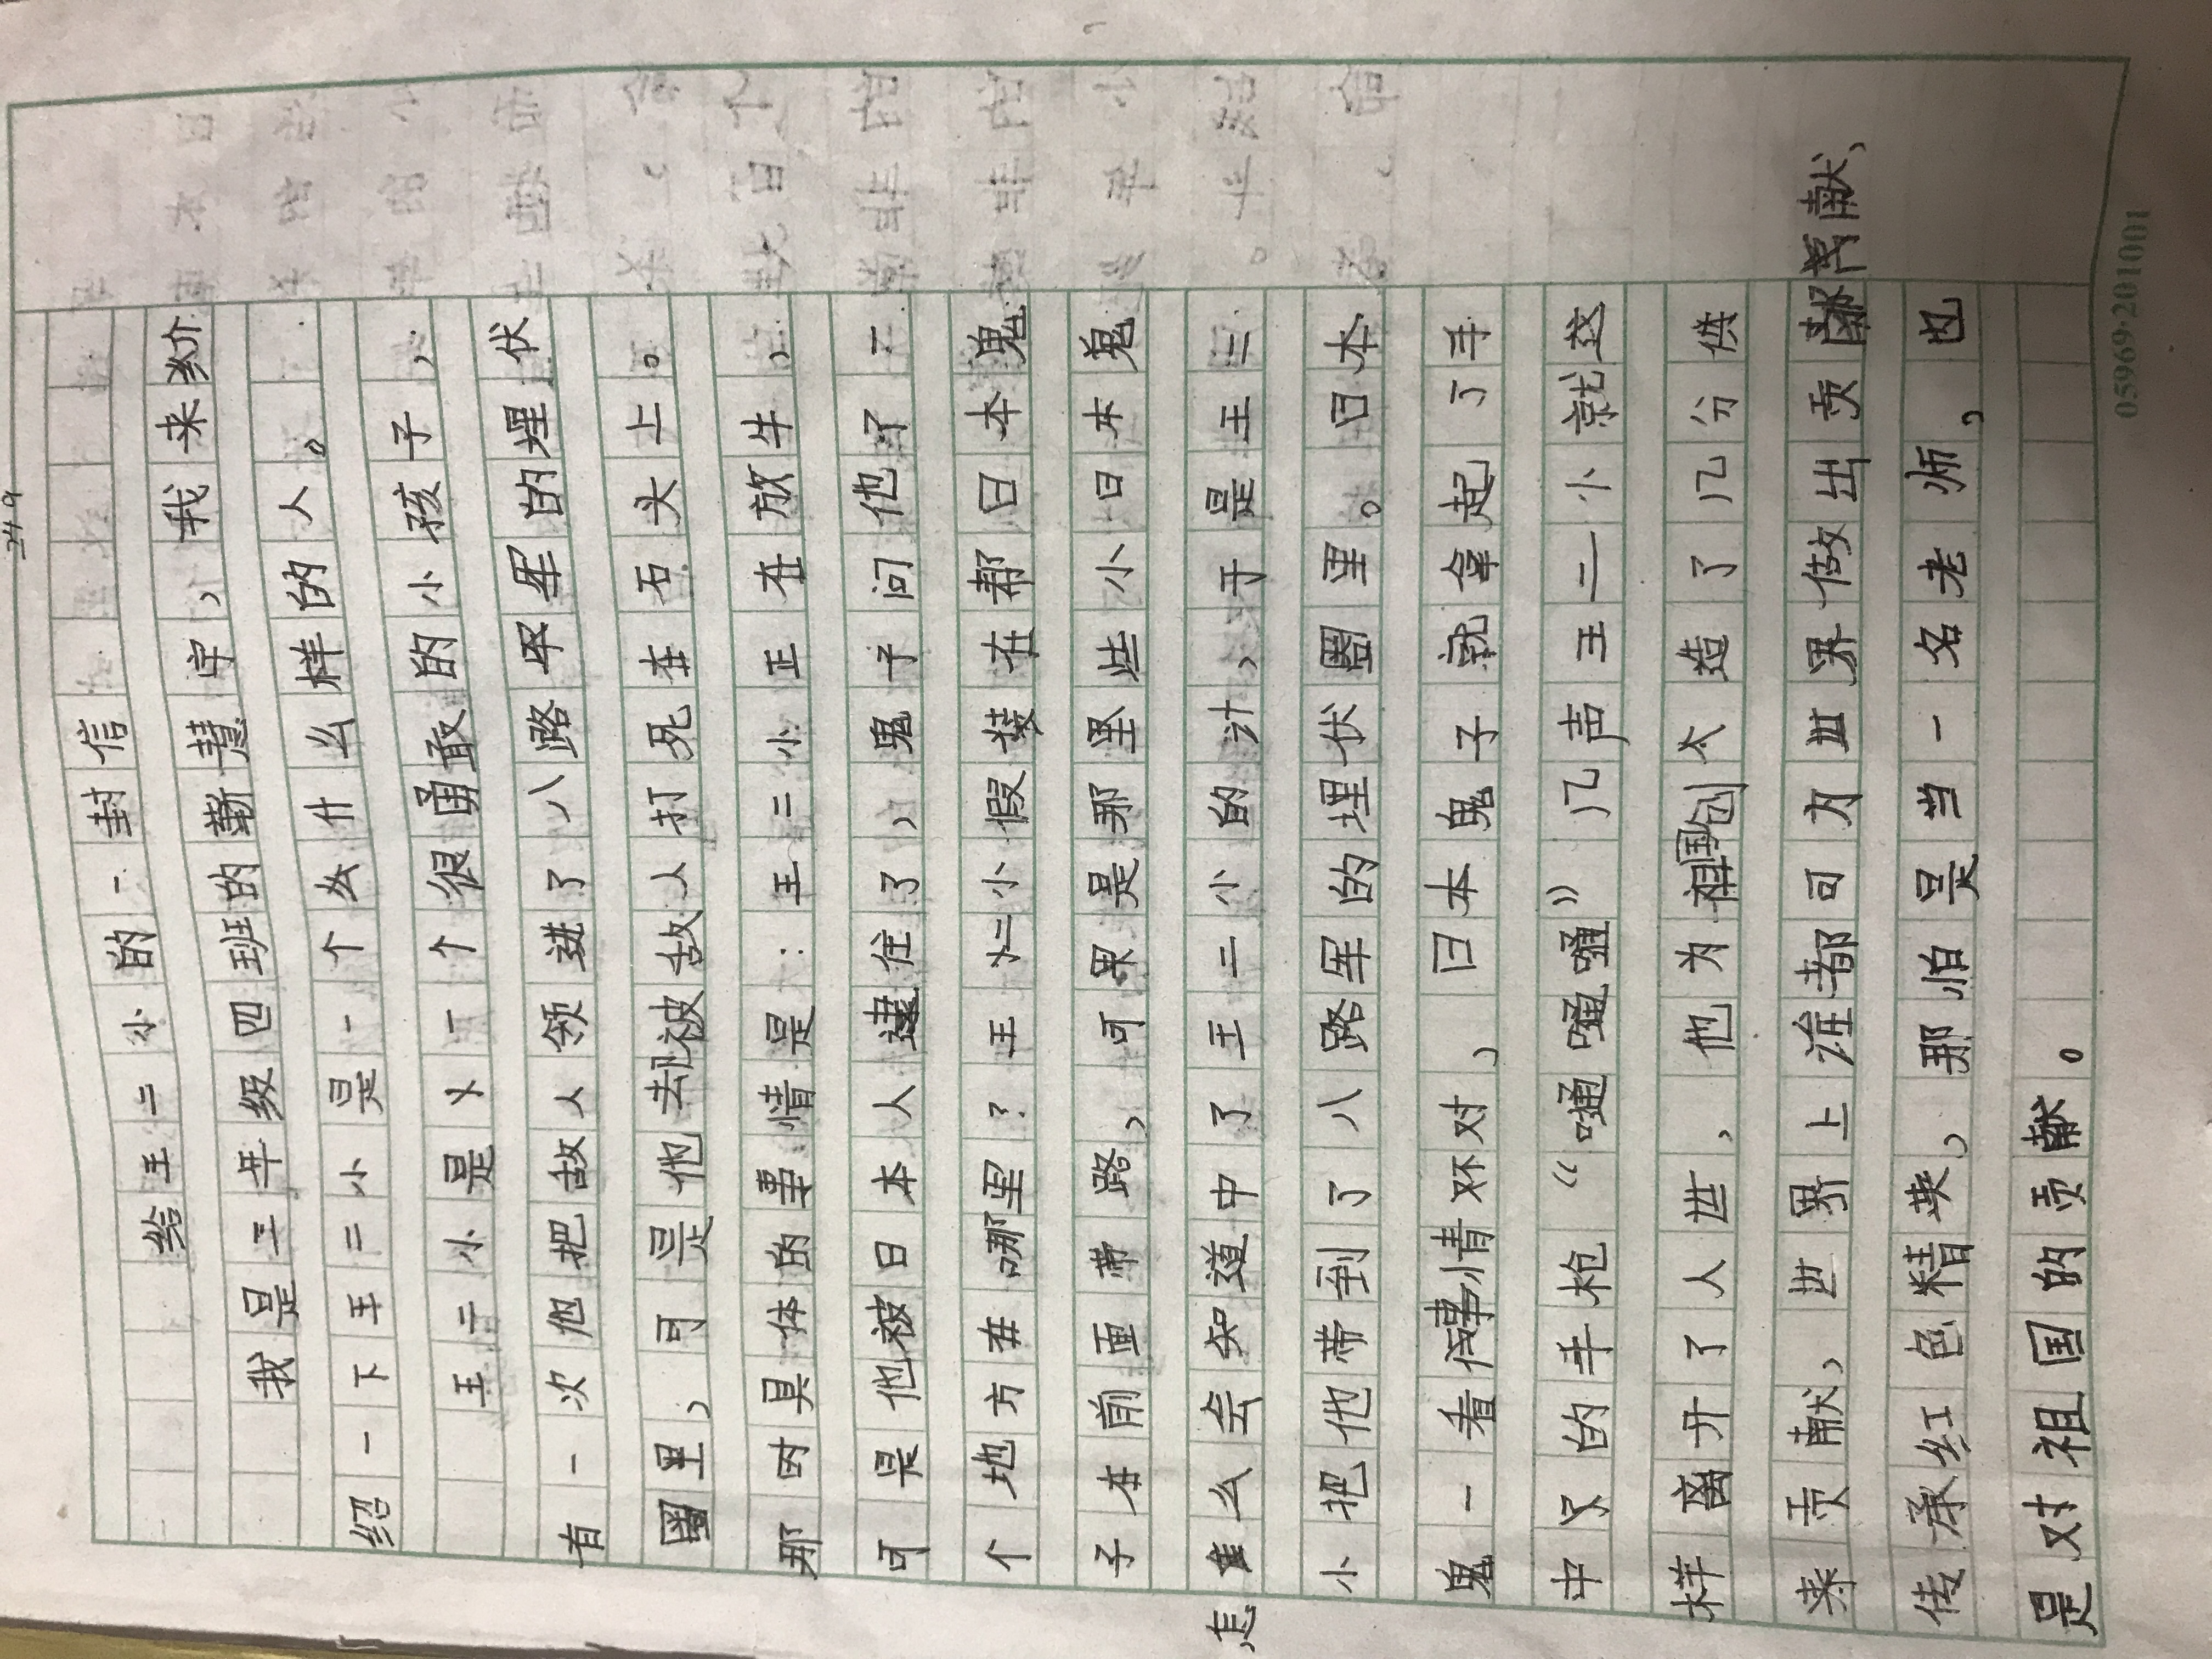 给王二小的一封信
我是三年级四班的蕲慧宇，我来介
绍一下王二小是一个什么样的人。
王二小是一个很勇敢的小孩子，
有一次他把敌人领进了八路军的埋伏
圈里，可是他却被敌人打死在石头上。
那时具体的事情是：王二小正在放牛，
可是他被日本人逮住了，鬼子问他了一
个地方在哪里？王二小假装在帮日本鬼
子在前面带路，可果是那里些小日本鬼
怎么会知道中了王二小的计，于是王二
小把他带到了八路军的埋伏圈里。日本
鬼一看事情坏对，日本鬼子就拿起了手
中的手枪“嗵嗵嗵”几声王二小就这
样离开了人世，他为祖国创造了几分供
来贡献，世界上谁都可为世界做出贡献，
传承红色精英，那怕是当一名老师，也
是对祖国的贡献。
05969·201001